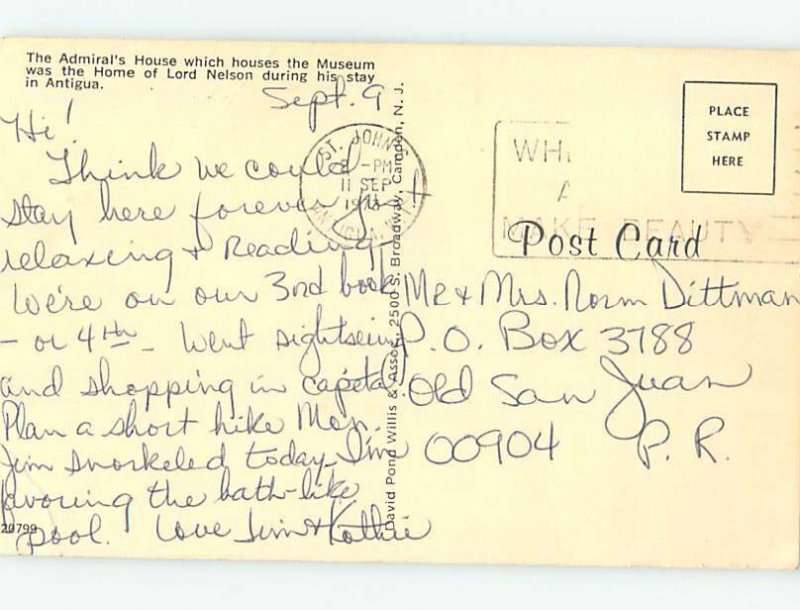 The Admiral's House which houses the Museum
was the Home of Lord Nelson during his stay
in Antigua.
Sept. 9
Hi!
Think we could
stay here forever just
relaxing + Reading -
We're on our 3rd book
- or 4th - Went sightseeing
and shopping in capital.
Plan a short hike Mon.
Jim snorkeled today - I'm
favoring the bath-like
pool. Love Jim & Kathie
20799
ST. JOHN'S
-PM
11 SEP
ANTIGUA, W.I.
David Pond Willis & Assoc., 2500 S. Broadway, Camden, N. J.
PLACE
STAMP
HERE
MAKE BEAUTY
Post Card
Mr + Mrs. Norm Dittman
P.O. Box 3788
Old San Juan
00904 P. R.